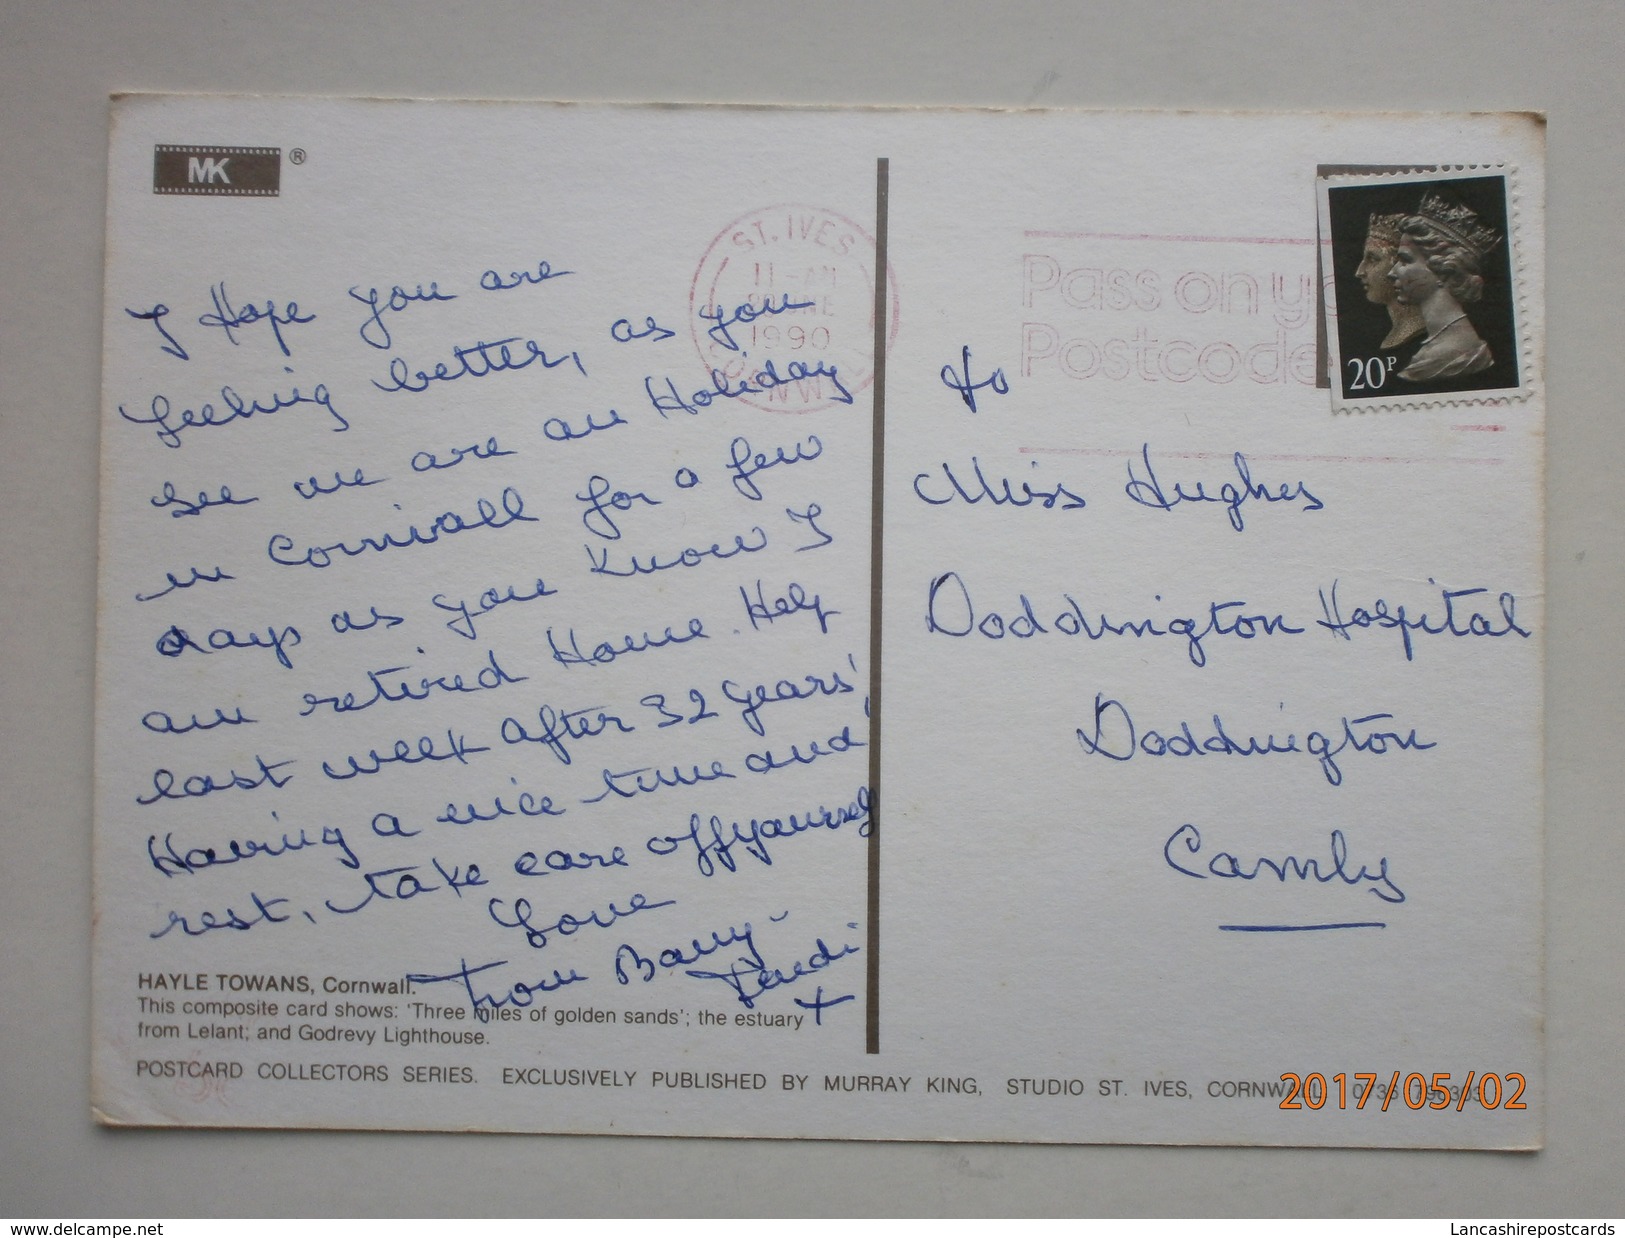 MK ®
I Hope you are
feeling better, as you
see we are on Holiday
in Cornwall for a few
days as you know I
am retired Home Help
last week after 32 years,
Having a nice time and
rest, take care off yourself
Love
From Barry
x
HAYLE TOWANS, Cornwall.
This composite card shows: 'Three miles of golden sands'; the estuary
from Lelant; and Godrevy Lighthouse.
POSTCARD COLLECTORS SERIES. EXCLUSIVELY PUBLISHED BY MURRAY KING, STUDIO ST. IVES, CORNWALL
ST. IVES
11-AM
1990
CORNWALL
Pass on
Postcode
20P
to
Miss Hughes
Doddington Hospital
Doddington
Cambs
2017/05/02
www.delcampe.net
Lancashirepostcards